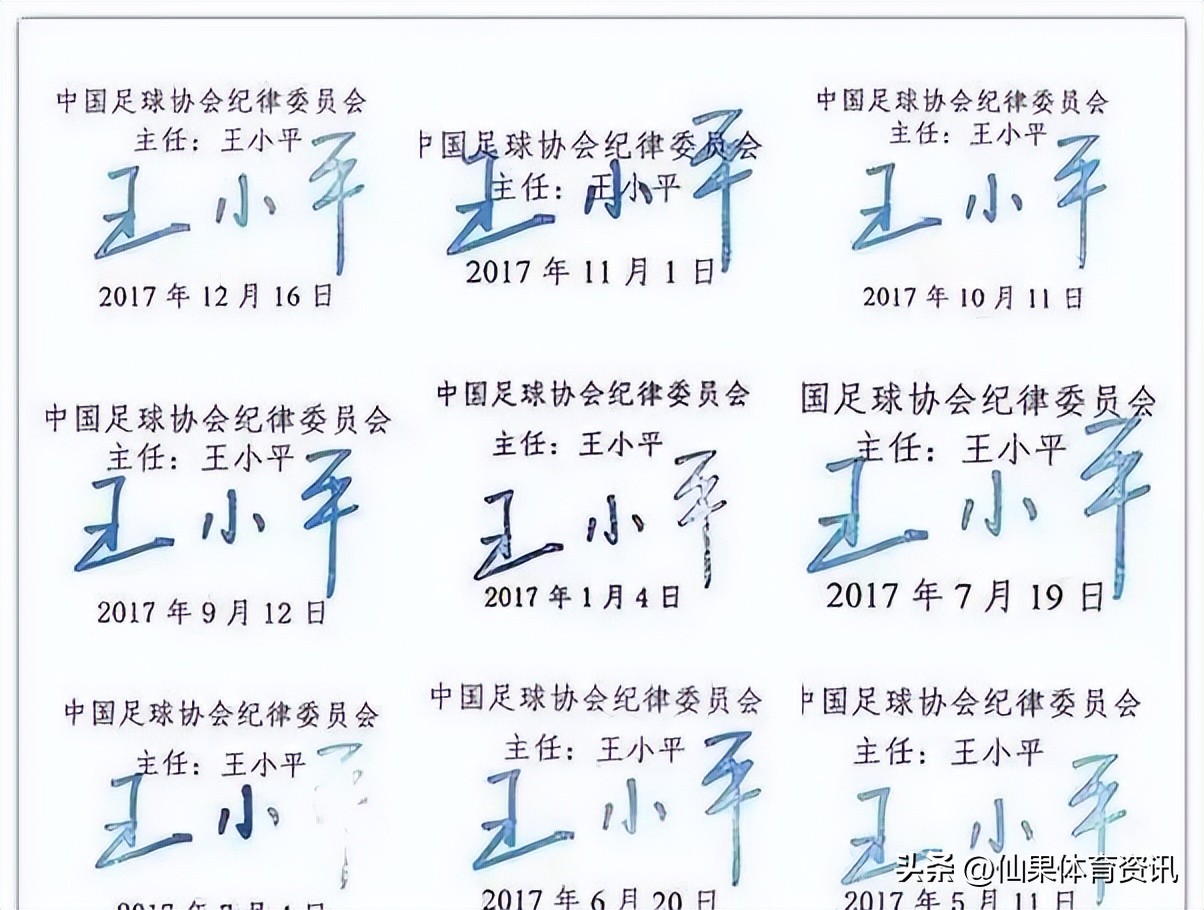 中国足球协会纪律委员会
主任：王小平
王小平
2017 年 12 月 16 日
中国足球协会纪律委员会
主任：王小平
王小平
2017 年 11 月 1 日
中国足球协会纪律委员会
主任：王小平
王小平
2017 年 10 月 11 日
中国足球协会纪律委员会
主任：王小平
王小平
2017 年 9 月 12 日
中国足球协会纪律委员会
主任：王小平
王小平
2017 年 1 月 4 日
国足球协会纪律委员会
主任：王小平
王小平
2017 年 7 月 19 日
中国足球协会纪律委员会
主任：王小平
王小平
中国足球协会纪律委员会
主任：王小平
王小平
2017 年 6 月 20 日
中国足球协会纪律委员会
主任：王小平
王小平
2017 年 5 月 11 日
头条 @仙果体育资讯